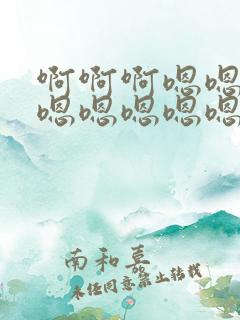 啊啊啊嗯嗯
嗯嗯嗯嗯嗯
南和真
未经同意禁止转载